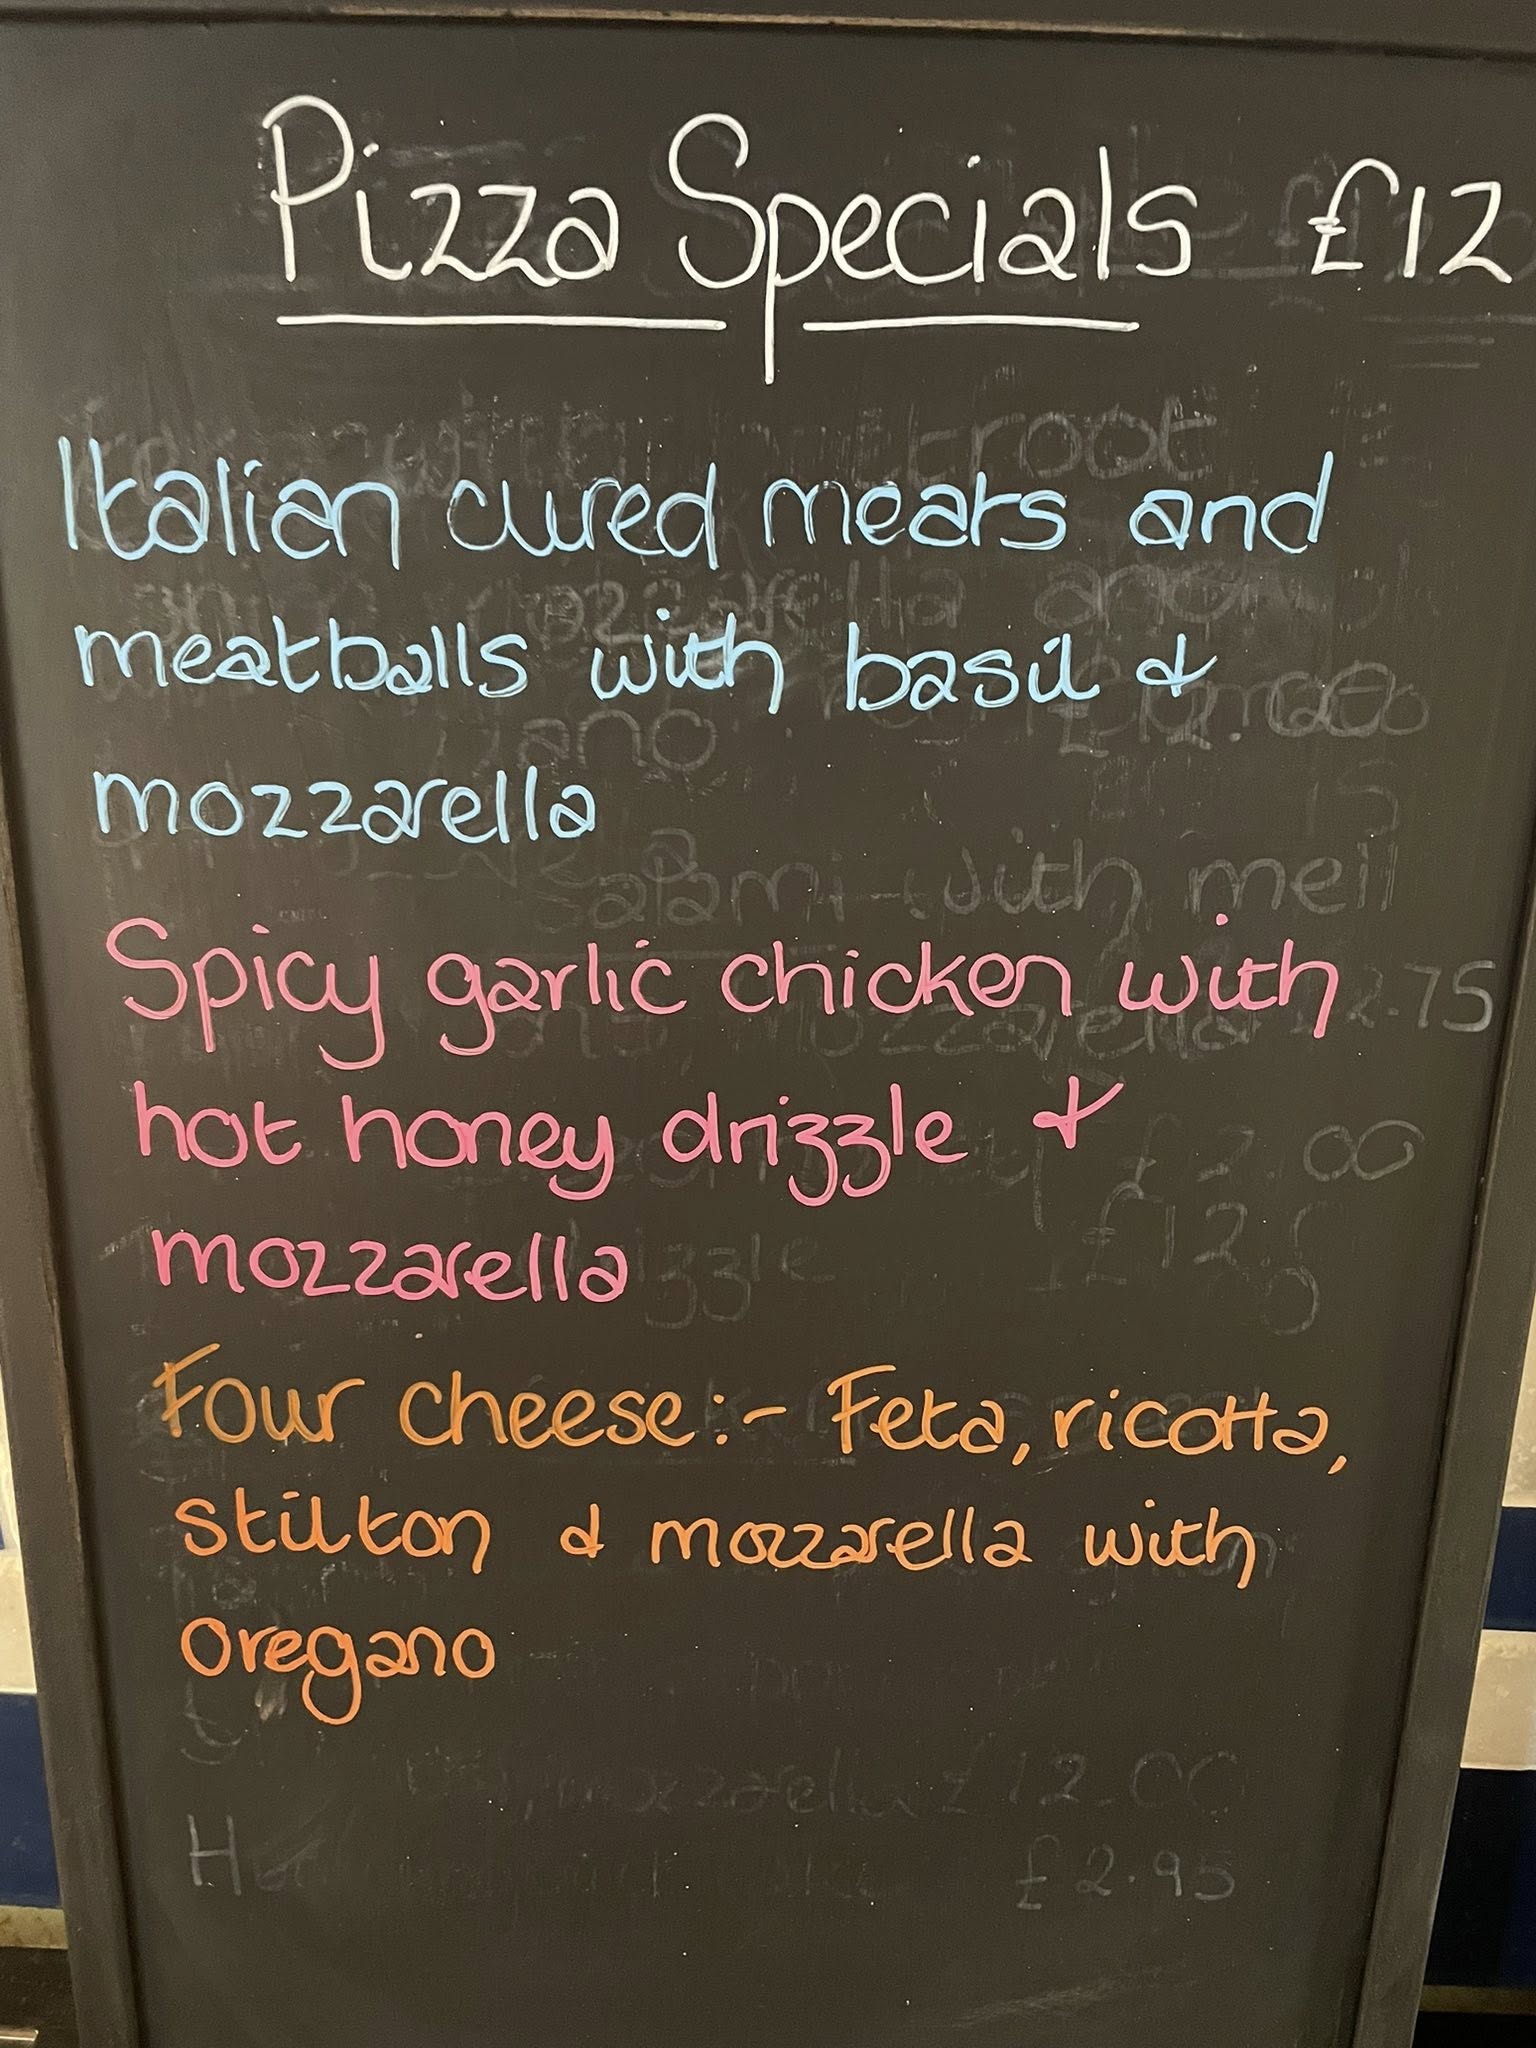 Pizza Specials £12
Italian cured meats and
meatballs with basil &
mozzarella
Spicy garlic chicken with
hot honey drizzle &
mozzarella
Four cheese:- Feta, ricotta,
stilton & mozzarella with
oregano